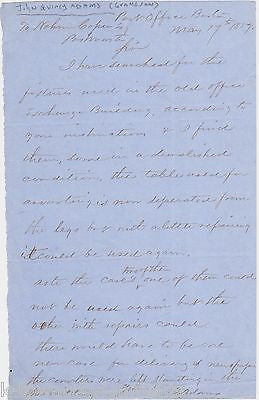 JOHN QUINCY ADAMS (GRANDSON)
Post Office Boston
To Nahum Capen May 19th 1859
Postmaster
Sir
I have searched for the
fixtures used in the old office
Exchange Building, according to
your instruction & I find
them, some in a demolished
condition, the table used for
assorting is now seperated from
the legs but with alittle repairing
it could be used again,
another
as to the case's one of them could
not be used again but the
other with repairs could
there would have to be one
new case for delivery of newspaper
the counters were left standing in the